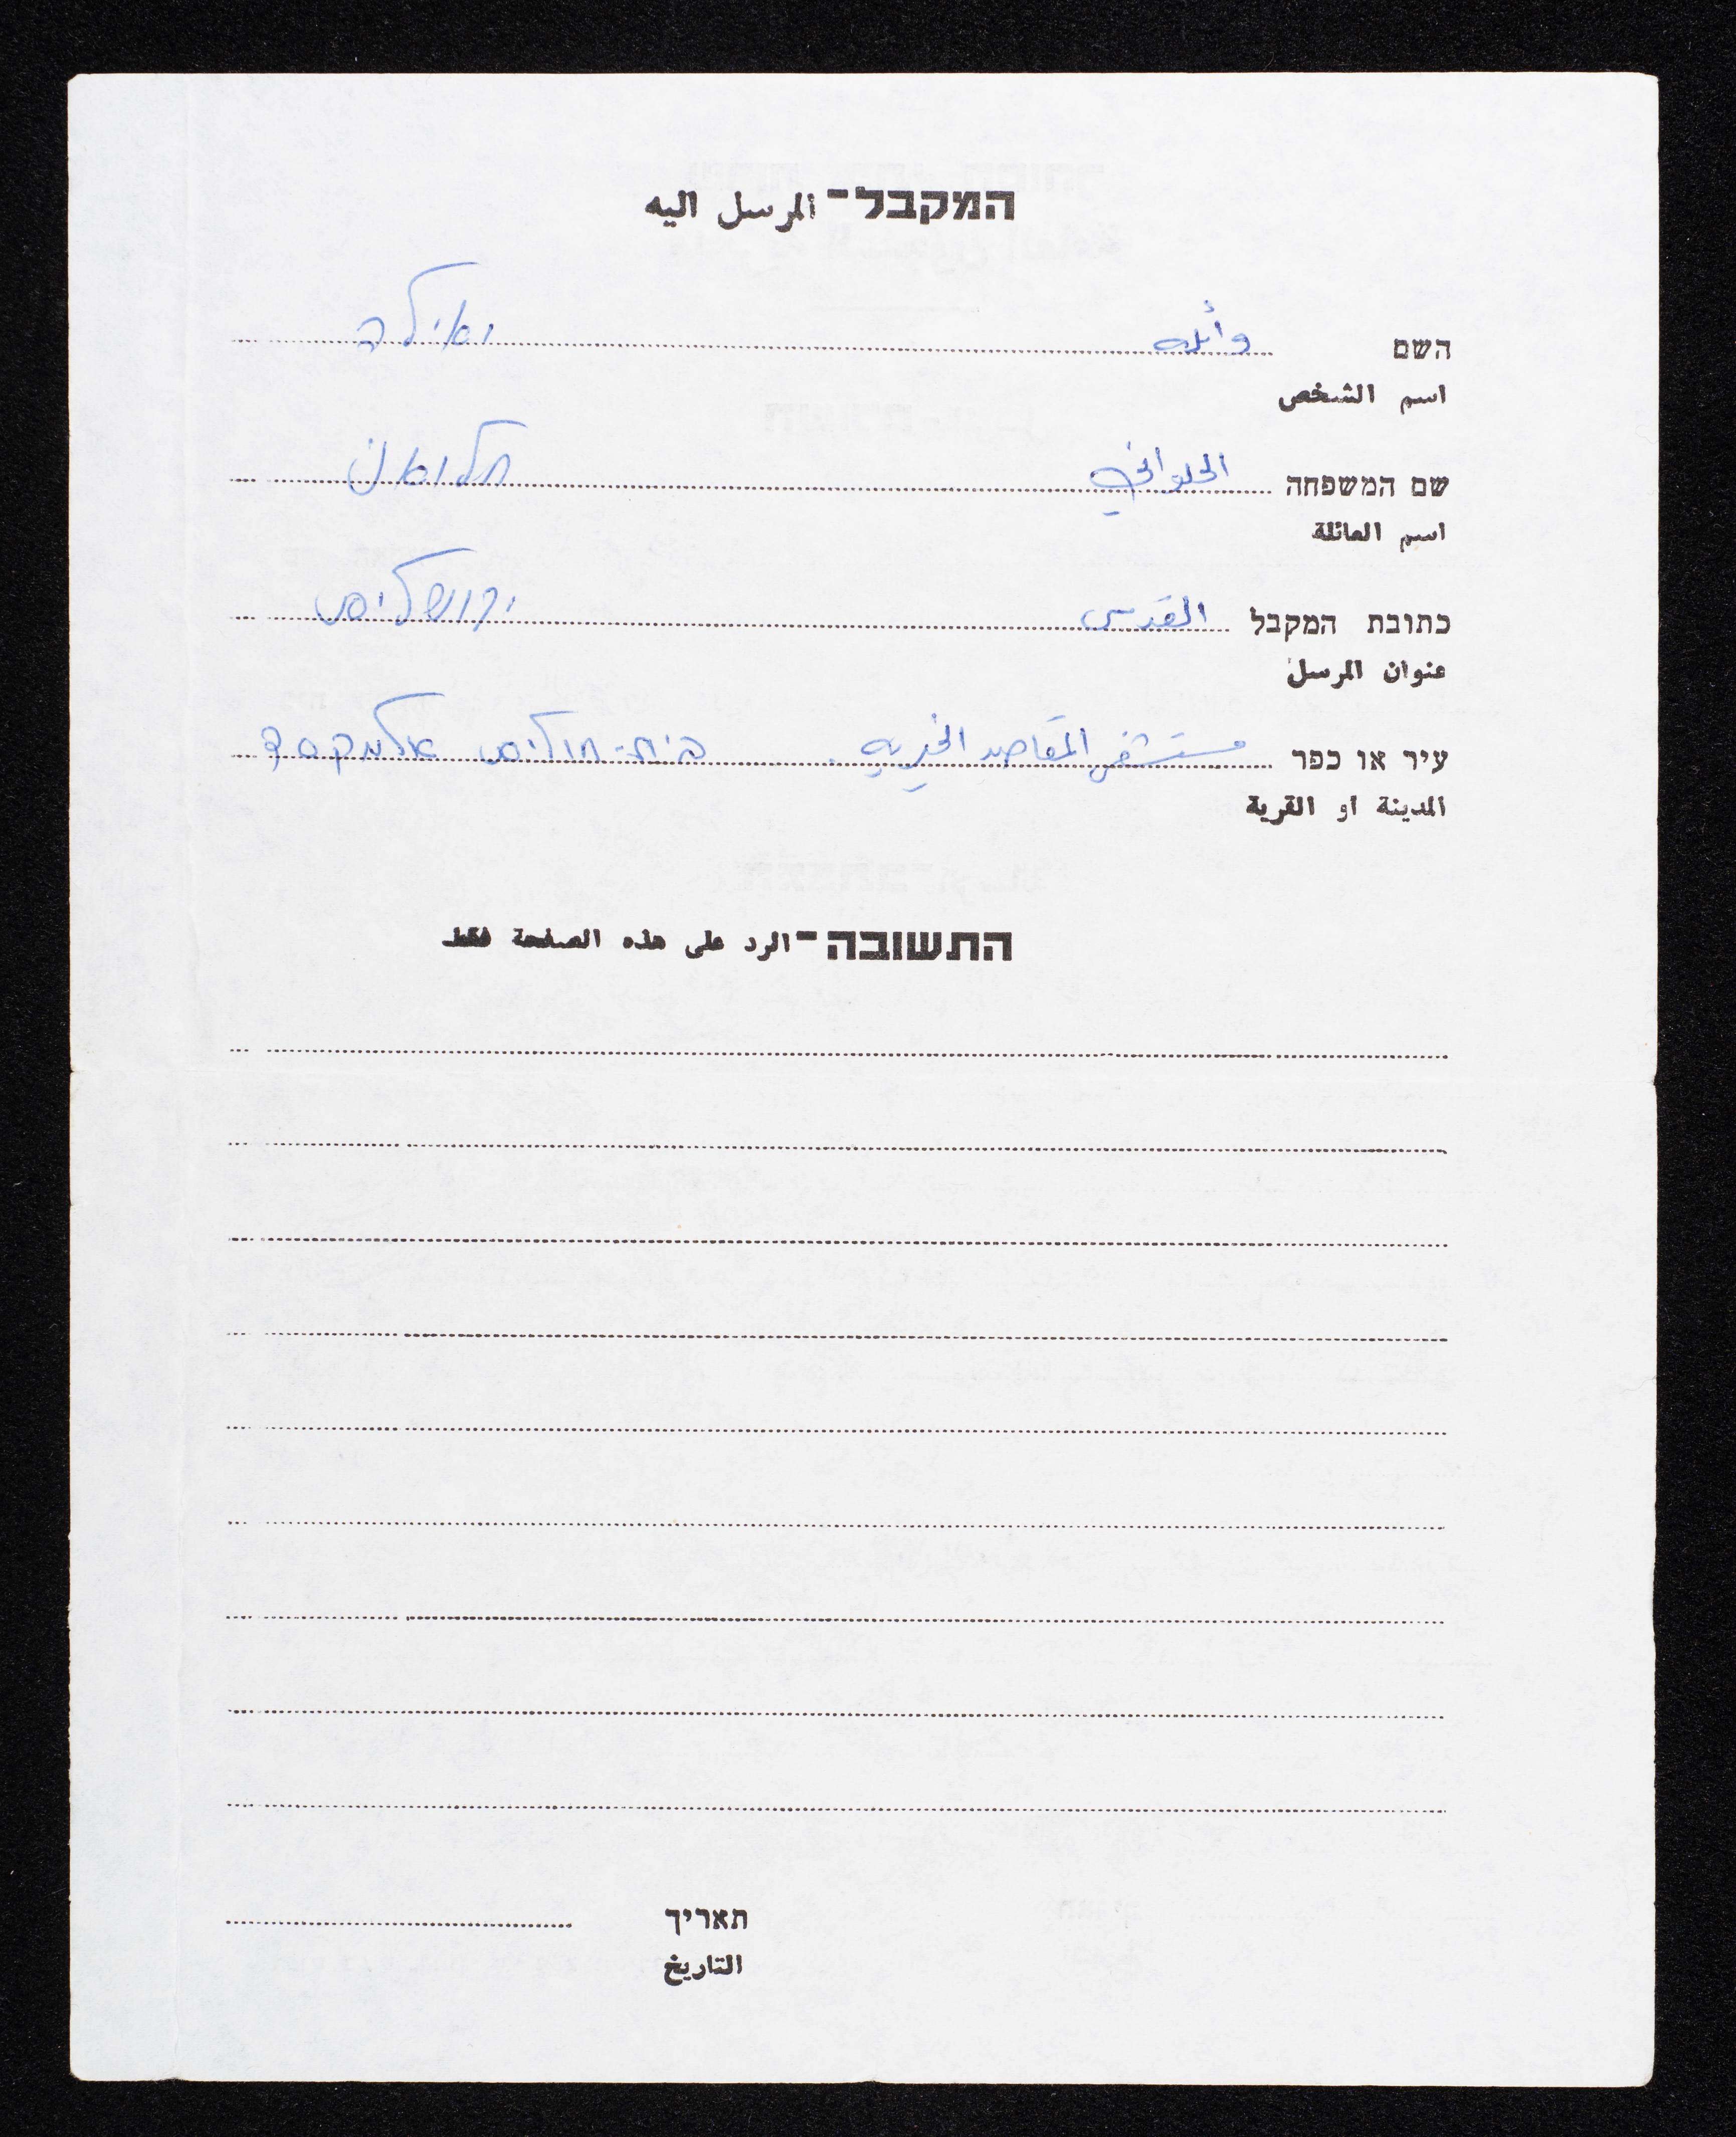 המקבל - المرسل اليه
השם وأئله ואילה
اسم الشخص
שם המשפחה الحلواني חלואני
اسم العائلة
כתובת המקבל القدس ירושלים
عنوان المرسل
עיר או כפר مستشفى المقاصد الخيريه . בית-חולים אלמקסד
المدينة او القرية
התשובה - الرد على هذه الصفحة فقط
תאריך
التاريخ